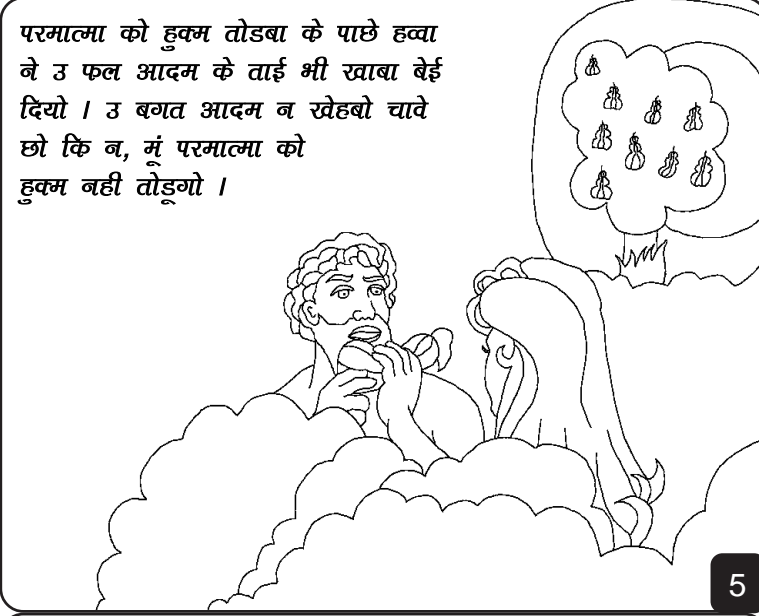 परमात्मा को हुक्म तोडबा के पाछे हव्वा
ने उ फल आदम के ताई भी खाबा बेई
दियो । उ बगत आदम न खेहबो चावे
छो कि न, मूं परमात्मा को
हुक्म नही तोडूगो ।
5